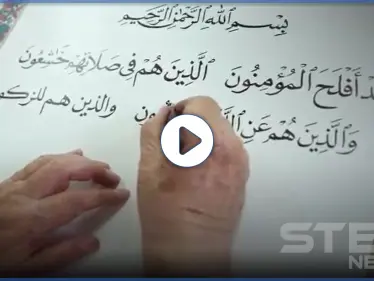 بِسْمِ اللهِ الرَّحْمٰنِ الرَّحِيْمِ
أَفْلَحَ الْمُؤْمِنُونَ الَّذِينَ هُمْ فِي صَلَاتِهِمْ خَاشِعُونَ
وَالَّذِينَ هُمْ عَنِ والذين هم
STE
NE